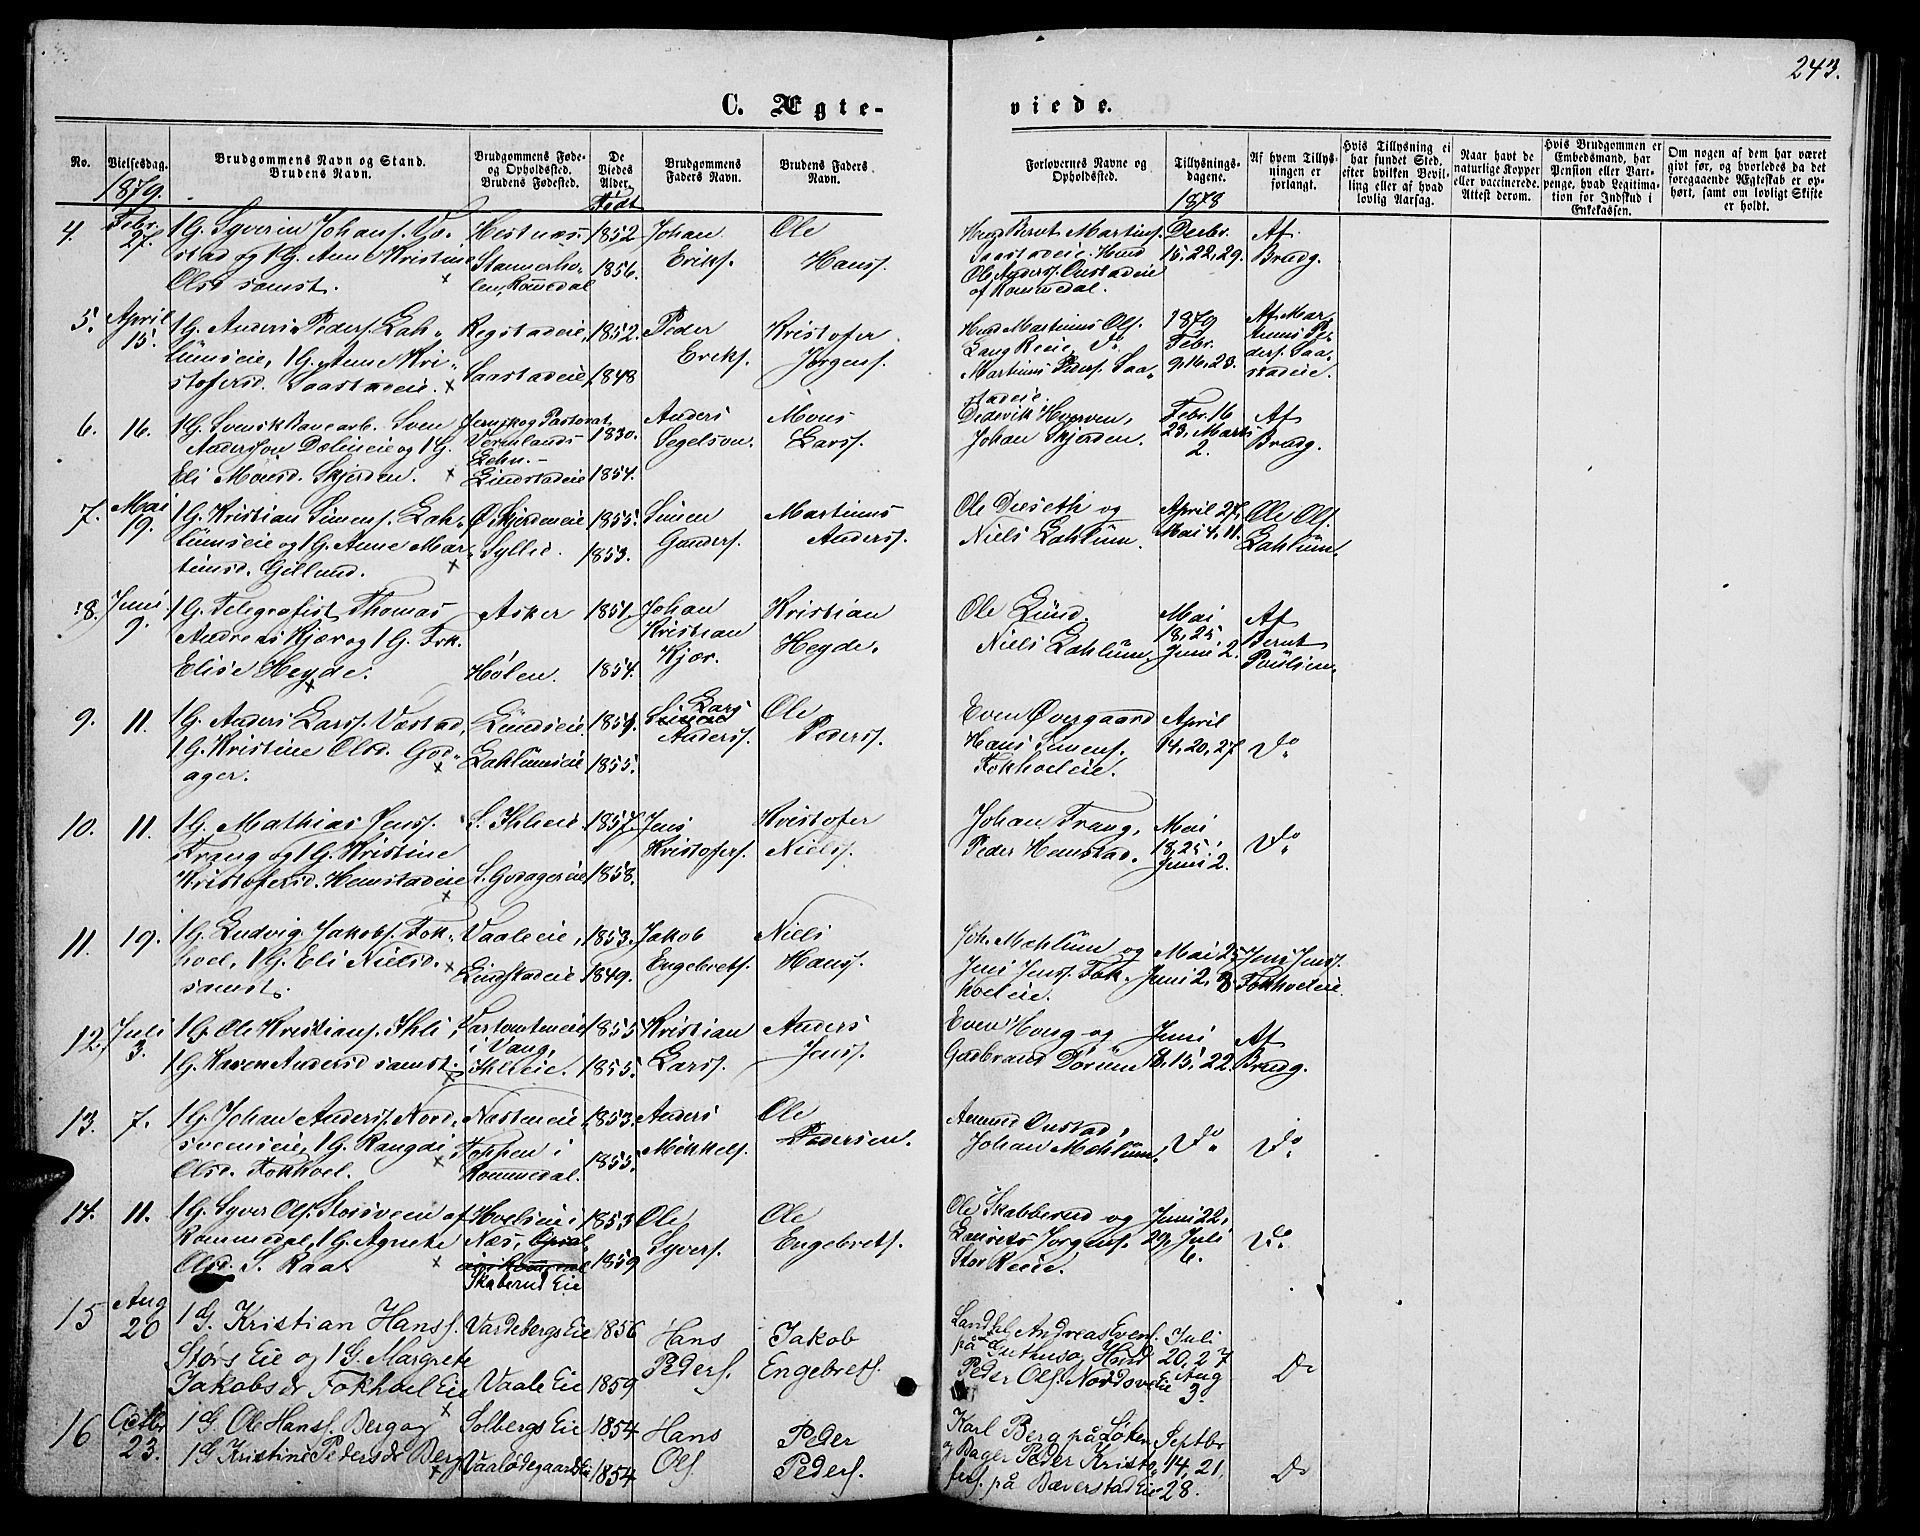 243.
C. Ægte-
viede.
No.
Vielsesdag.
Brudgommens Navn og Stand.
Brudens Navn.
Brudgommens Føde-
og Opholdssted.
Brudens Fødested.
De
Viedes
Alder.
Brudgommens
Faders Navn.
Brudens Faders
Navn.
Forlovernes Navne og
Opholdssted.
Tillysnings-
dagene.
Af hvem Tillys-
ningen er
forlangt.
Hvis Tillysning ei
har fundet Sted,
efter hvilken Bevil-
ling eller af hvad
lovlig Aarsag.
Naar havt de
naturlige Kopper
eller vaccinerede.
Attest derom.
Hvis Brudgommen er
Embedsmand, har
Pension eller Vart-
penge, hvad Legitima-
tion for Indskud i
Enkekassen.
Om nogen af dem har været
givt før, og hvorledes da det
foregaaende Ægteskab er op-
hørt, samt om lovligt Skifte
er holdt.
1879.
Født
1878
4. Febr. 27. 1 G. Syverin Johans. Væ-
stad og 1 G. Anne Kristine
Olsd samst.
Hestnæs
Stammerho-
len, Romedal
1852
1856.
Johan
Eriks.
Ole
Hans.
Husm. Bernt Martins.
Saastadeie. Husm
Ole Anders. Oustadeie
af Rommedal.
Decbr.
15, 22, 29.
Af
Brudg.
5. April 15. 1 G. Anders Peders. Lah-
lumseie, 1 G. Anne Kri-
stofersd. Saastadeie.
Regstadeie,
Saastadeie,
1852.
1848
Peder
Eriks.
Kristofer
Jørgens.
Husm Martinus Ols.
Lang Reeie, Do
Martinus Peders. Saa-
stadeie.
1879
Febr.
9, 16, 23.
Af Mar-
tinus Pe-
ders. Saa-
stadeie.
6. 16. 1 G. Svensk Banearb. Sven
Anderson Dølineie og 1 G.
Eli Monsd. Skjerden.
Jernskog Pastorat,
Vermlands
Lehn.-
Lindstadeie
1830.
1854.
Anders
Segelson.
Mons
Lars.
Dedevik Hverven,
Johan Skjerden.
Febr. 16
23, Marts
2.
Af
Brudg.
7. Mai 19. 1 G. Kristian Simens. Lah-
lumseie og 1 G. Anne Mar-
tinsd. Gillund.
Ø. Skjerdeneie
Syllid.
1855.
1853.
Simen
Gunders.
Martinus
Anders.
Ole Deseth og
Niels Lahlum.
April 27,
Mai 4, 11.
Ole Ols.
Lahlum.
8. Juni 9. 1 G. Telegrafist Thomas
Andreas Kjær og 1 G. Frk.
Elise Heyde.
Asker
Hølen.
1851.
1854.
Johan
Kristian
Kjær.
Kristian
Heyde.
Ole Lund.
Niels Lahlum.
Mai
18, 25,
Juni 2.
Af
Bernt
Poulsen.
9. 11. 1 G. Anders Larss. Væstad,
1 G. Kristine Olsd. God-
ager.
Lundseie
Lahlumseie
1854.
1855.
Lars
Anders.
Ole
Peders.
Even Øvergaard
Hans Simens.
Fokholeie.
April
14, 20, 27
Do
10. 11. 1 G. Mathias Jens.
Frang og 1 G. Kristine
Kristofersd. Hemstadeie
S. Ihleie.
S. Godagereie
1857.
1858.
Jens
Kristofers.
Kristofer
Niels.
Johan Frang,
Peder Hemstad.
Mai
18, 25,
Juni 2.
Do
11. 19. 1 G. Ludvig Jakobs. Fok-
hoel, 1 G. Eli Nielsd.
samst.
Vaaleie,
Lindstadeie
1853.
1849.
Jakob
Engebrets.
Niels
Hans.
Joh. Mehlum og
Jens Jens. Fok-
hoeleie.
Mai 25
Juni 2, 8
Jens Jens.
Fokhoeleie.
12. Juli 3. 1 G. Ole Kristians. Ihli,
1 G. Karen Andersd samst.
i Vang,
Ihleie.
1855
1855.
Kristian
Lars.
Anders
Jens.
Even Hverg og
Gudbrand Dørum
Juni
8, 15, 22.
Af
Brudg.
13. 7. 1 G. Johan Anders. Nord-
svenseie, 1 G. Rangdi
Olsd. Fokhoel.
Næsteneie
Koppen i
Rommedal.
1853.
1855.
Anders
Mikkels.
Ole
Pedersen.
Amund Oustad,
Johan Mehlum.
Do
Do
14. 11. 1 G. Syver Ols. Storsveen af
Rommedal, 1 G. Agnete
Olsd. S. Raa.
Hoelseie i
Næs,
Skaberud Eie
1853
1859
Ole
Syvers.
Ole
Engebrets.
Ole Skabberud og
Laurits Jørgens.
Stor Reeie.
Juni 22,
29, Juli
6.
Do
15 Aug 20 1 G. Kristian Hans.
Størs Eie og 1 G. Margrete
Jakobsdr Fokhoel Eie
Vardebergs Eie
Vaale Eie
1856
1859
Hans
Peders.
Jakob
Engebrets.
Landh. Andreas Evens.
på Guthus og Husmd
Peder Ols. Nordsve Eie
Juli
20, 27
Aug
3.
Do
16 Octbr 23. 1 G Ole Hans. Berg og
1 G Kristine Pedersdr Berg
Solbergs Eie
Vaalødegaards Eie
1854
1854
Hans
Ols.
Peder
Peders.
Karl Berg på Løken
og Bager Peder Kristo-
fers. på Bæverstad Eie
Septbr
14, 21,
28.
Do